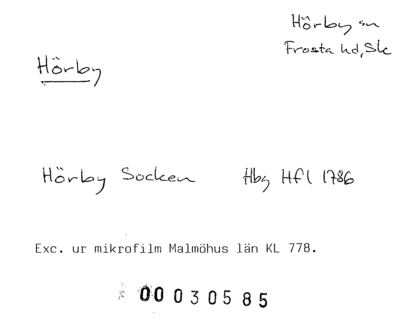 Hörby sn
Frosta hd, Sk
Hörby
Hörby Socken Hbg Hfl 1786
Exc. ur mikrofilm Malmöhus län KL 778.
00 030585